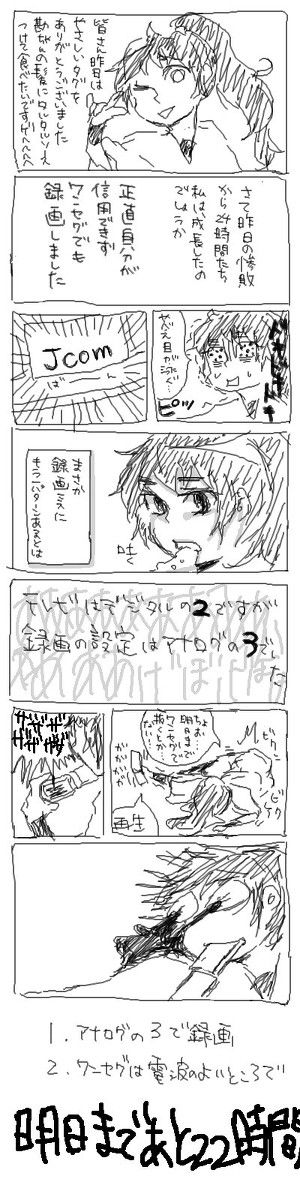 皆さん昨日は
やさしいタグを
ありがとうございました
勘ちゃんの髪にタルタルソース
つけて食べたいですゲヘヘヘヘ
さて昨日の惨敗
から24時間たち
私は、成長したの
でしょうか
正直自分が
信用できず
ワンセグでも
録画しました
やべえ目が泳ぐ…
ピッ
Jcom
ばーん
まさか
録画ミスに
もう一パターンあるとは
吐く
テレビはデジタルの2ですが
録画の設定はアナログの3でした
ちょお
明日まで
ワンセグで
抜くしか
ない…
ビクン
ビクン
ガガガガ
再生
ザザザザ
ザザザザ
1.アナログの3で録画
2.ワンセグは電波のよいところで
明日まであと22時間